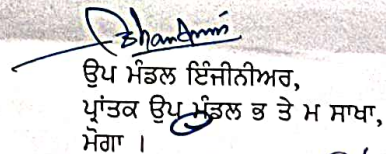 ਉਪ ਮੰਡਲ ਇੰਜੀਨੀਅਰ,
ਪ੍ਰਾਂਤਕ ਉਪ ਮੰਡਲ ਭ ਤੇ ਮ ਸਾਖਾ,
ਮੋਗਾ ।